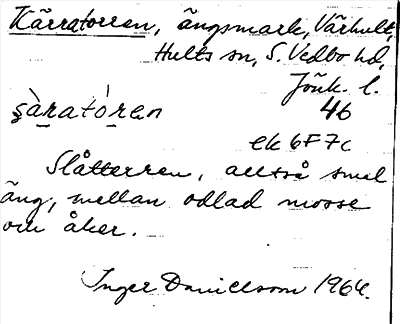 Kärratorren, ängsmark, Värhult,
Hults sn, S. Vedbo hd,
Jönk. l.
şàratór̲en 46
ek 6F7c
Slåtterren, alltså smal
äng, mellan odlad mosse
och åker.
Inger Danielsson 1964.